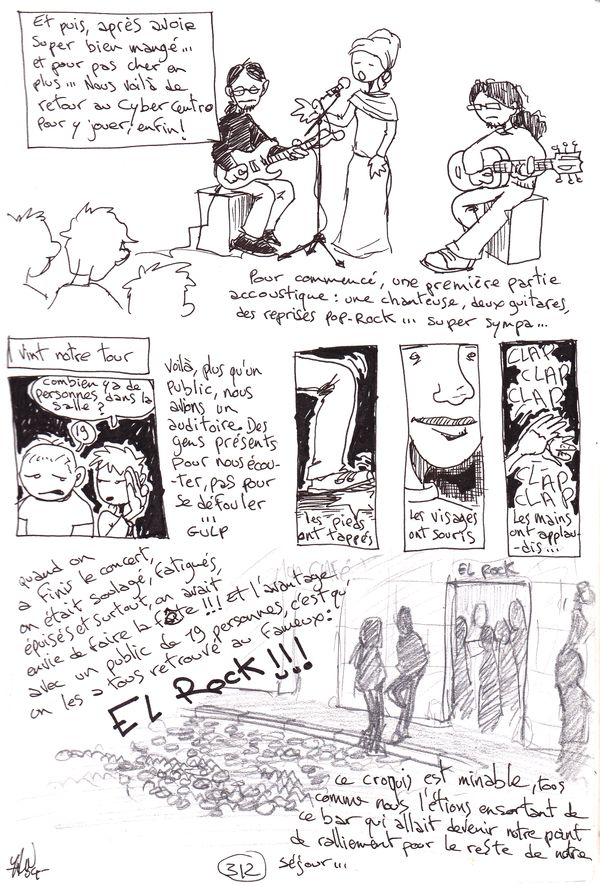 Et puis, après avoir
super bien mangé...
et pour pas cher en
plus... Nous voilà de
retour au CyberCentro
pour y jouer, enfin!
Pour commencé, une première partie
accoustique : une chanteuse, deux guitares,
des reprises pop-Rock... super sympa...
Vint notre tour
combien ya de
personnes dans la
salle ?
19
Voilà, plus qu'un
public, nous
avions un
auditoire. Des
gens présents
pour nous écou-
-ter, pas pour
se défouler
...
GULP
les pieds
ont tappés
Les visages
ont souris
CLAP
CLAP
CLAP
CLAP
CLAP
Les mains
ont applau-
-dis...
quand on
a finis le concert,
on était soulagé, fatigués,
épuisés et surtout, on avait
envie de faire la fête !!! Et l'avantage
avec un public de 19 personnes, c'est qu'
on les a tous retrouvé au fameux :
EL Rock!!!
EL ROCK
ce croquis est minable, tous
comme nous l'étions en sortant de
ce bar qui allait devenir notre point
de ralliement pour le reste de notre
séjour...
312